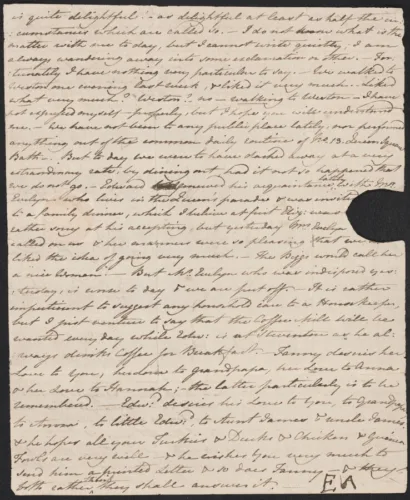 is quite delightful: - as delightful at least as half the cir
cumstances which are called so. - I do not know what is the
matter with me to day, but I cannot write quietly; I am
always wandering away into some exclamation or other. For
tunately I have nothing very particular to say. - We walked to
Weston one evening last week, & liked it very much. - Liked
what very much? Weston? - no - walking to Weston - I have
not expressed myself properly, but I hope you will understand
me. - We have not been to any public place lately, nor performed
anything out of the common daily routine of No. 13. Queen Square
Bath -. But to day we were to have dashed away at a very
extraordinary rate, by dining out, had it not so happened that
we do not go. - Edward renewed his acquaintance lately with Mr
Evelyn who lives in the Queen's parade & was invited
to a family dinner, which I believe at first Eliz: was
rather sorry at his accepting, but yesterday Mrs Evelyn
called on us & her manners were so pleasing that we
liked the idea of going very much. - The Biggs would call her
a nice Woman. - But Mr Evelyn who was indisposed yes:
:terday, is worse to day & we are put off. - It is rather
impertinent to suggest any household care to a Housekeeper,
but I just venture to say that the Coffee Mill will be
wanted every day while Edw: is at Steventon as he al:
:ways drinks Coffee for Breakfast. - Fanny desires her
Love to You, her Love to Grandpapa, her Love to Anna
& her Love to Hannah; the latter particularly is to be
remembered. - Edwd: desires his Love to You, to Grandpapa
to Anna, to little Edwd:, to Aunt James & Uncle James,
& he hopes all your Turkies & Ducks & Chicken & Guinea
Fowls are very well - & he wishes You very much to
send him a printed Letter & so does Fanny - & they
both rather think they shall answer it.
EA